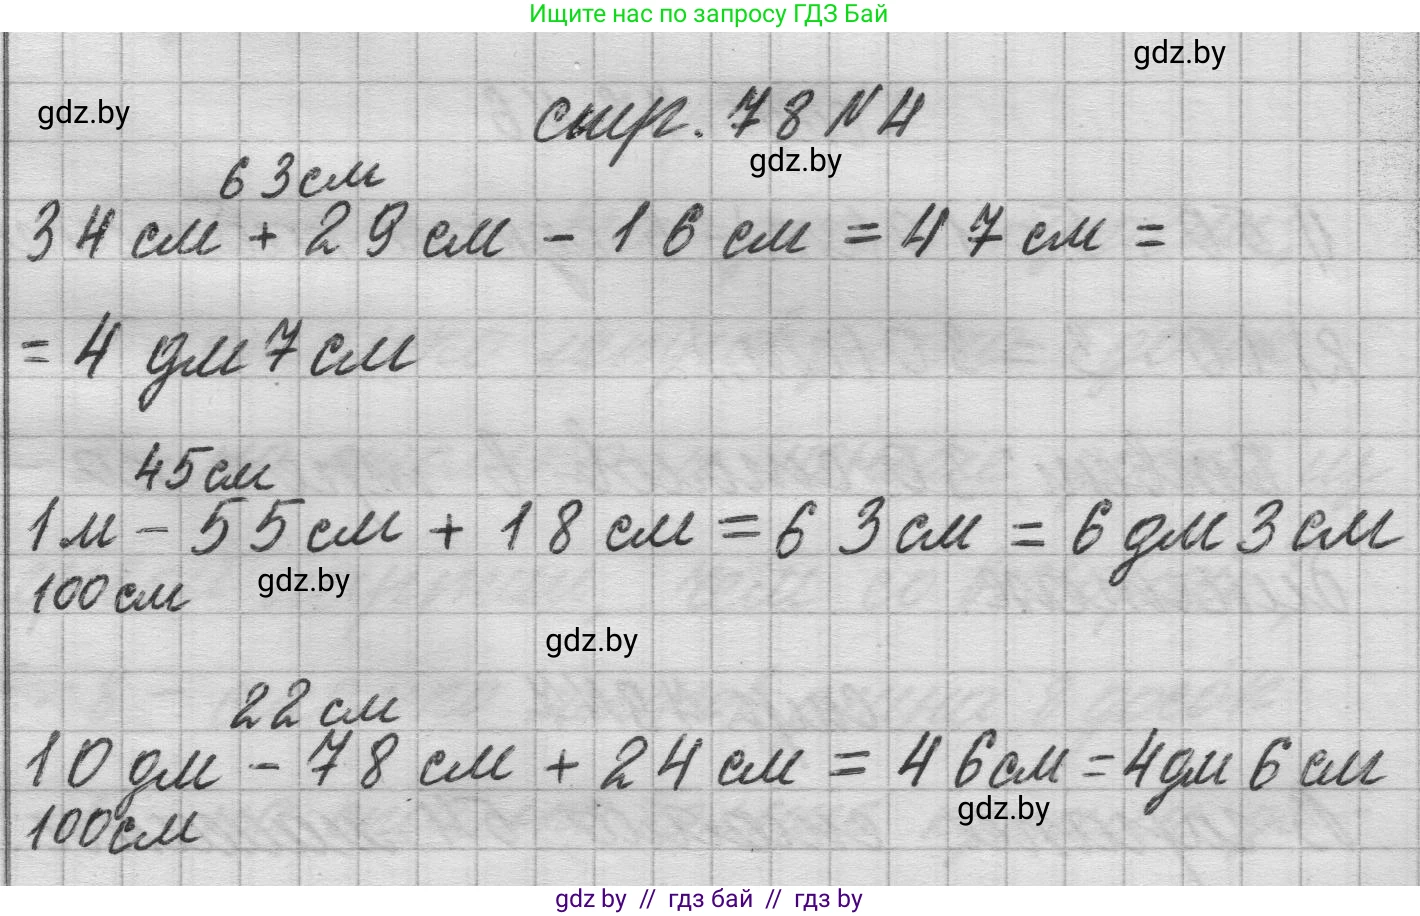 Ищите нас по запросу ГДЗ Бай
gdz.by
gdz.by
стр. 78 № 4
gdz.by
63 см
34 см + 29 см - 16 см = 47 см =
= 4 дм 7 см
45 см
1 м - 55 см + 18 см = 63 см = 6 дм 3 см
100 см
gdz.by
gdz.by
22 см
10 дм - 78 см + 24 см = 46 см = 4 дм 6 см
gdz.by
100 см
gdz.by // гдз бай // гдз by